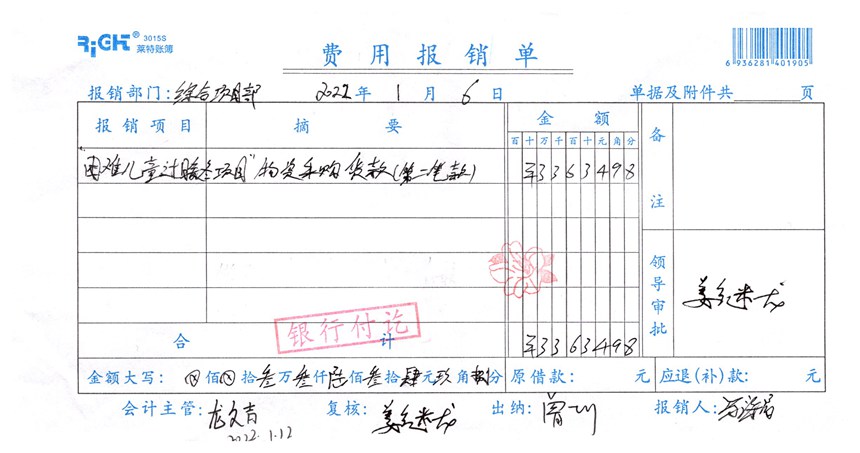 RiGHT® 3015S
莱特账簿
费用报销单
6 936281 401905
报销部门:综合项目部 2022年1月6日 单据及附件共 页
报销项目 摘要 金额 备注
百十万千百十元角分
"困难儿童过暖冬项目"物资采购货款(第二笔款) ¥3363498
领导审批 姜连米尤
银行付讫
合计 ¥3363498
金额大写: ⊗佰⊗拾叁万叁仟陆佰叁拾肆元玖角捌分 原借款: 元 应退(补)款: 元
会计主管:龙久吉 复核: 出纳:曾 报销人:
2022.1.12